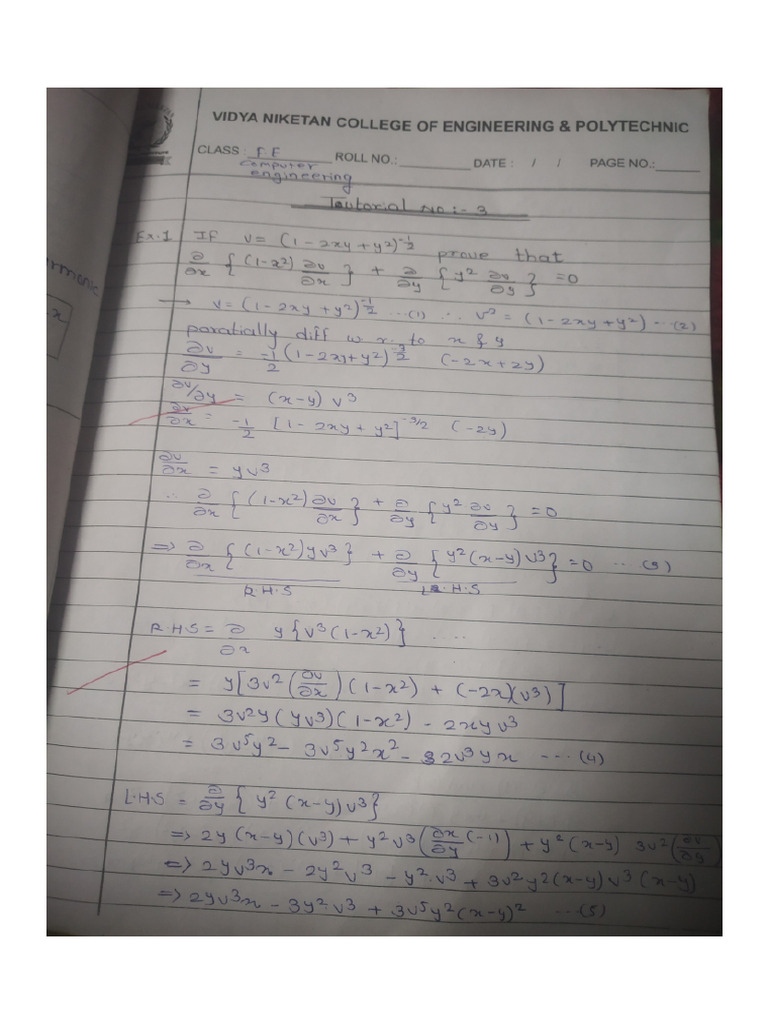 VIDYA NIKETAN COLLEGE OF ENGINEERING & POLYTECHNIC
CLASS : FF ROLL NO.: DATE : / / PAGE NO.:
computer
engineering
Toutorial No :- 3
Ex.1 If v = (1 - 2xy + y²)^-1/2 prove that
∂/∂x { (1-x²) ∂v/∂x } + ∂/∂y { y² ∂v/∂y } = 0
→ v = (1 - 2xy + y²)^-1/2 ...(1) ∴ v³ = (1 - 2xy + y²) ...(2)
paratially diff w.r. to x & y
∂v/∂y = -1/2 (1 - 2xy + y²)^-3/2 (-2x + 2y)
∂v/∂y = (x-y) v³
∂v/∂x = -1/2 [1 - 2xy + y²]^-3/2 (-2y)
∂v/∂x = yv³
∴ ∂/∂x { (1-x²) ∂v/∂x } + ∂/∂y { y² ∂v/∂y } = 0
⇒ ∂/∂x { (1-x²) yv³ } + ∂/∂y { y² (x-y) v³ } = 0 ... (3)
R.H.S L.H.S
R.H.S = ∂/∂x y { v³ (1-x²) } ....
= y [ 3v² (∂v/∂x) (1-x²) + (-2x)(v³) ]
= 3v²y (yv³)(1-x²) - 2xyv³
= 3v⁵y² - 3v⁵y²x² - 2v³yx ... (4)
L.H.S = ∂/∂y { y² (x-y) v³ }
⇒ 2y (x-y)(v³) + y²v³ (∂x/∂y (-1)) + y² (x-y) 3v² (∂v/∂y)
⇒ 2yv³x - 2y²v³ - y²v³ + 3v²y² (x-y) v³ (x-y)
⇒ 2yv³x - 3y²v³ + 3v⁵y² (x-y)² ... (5)